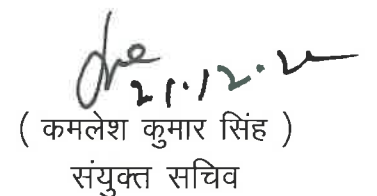 21.12.22
( कमलेश कुमार सिंह )
संयुक्त सचिव